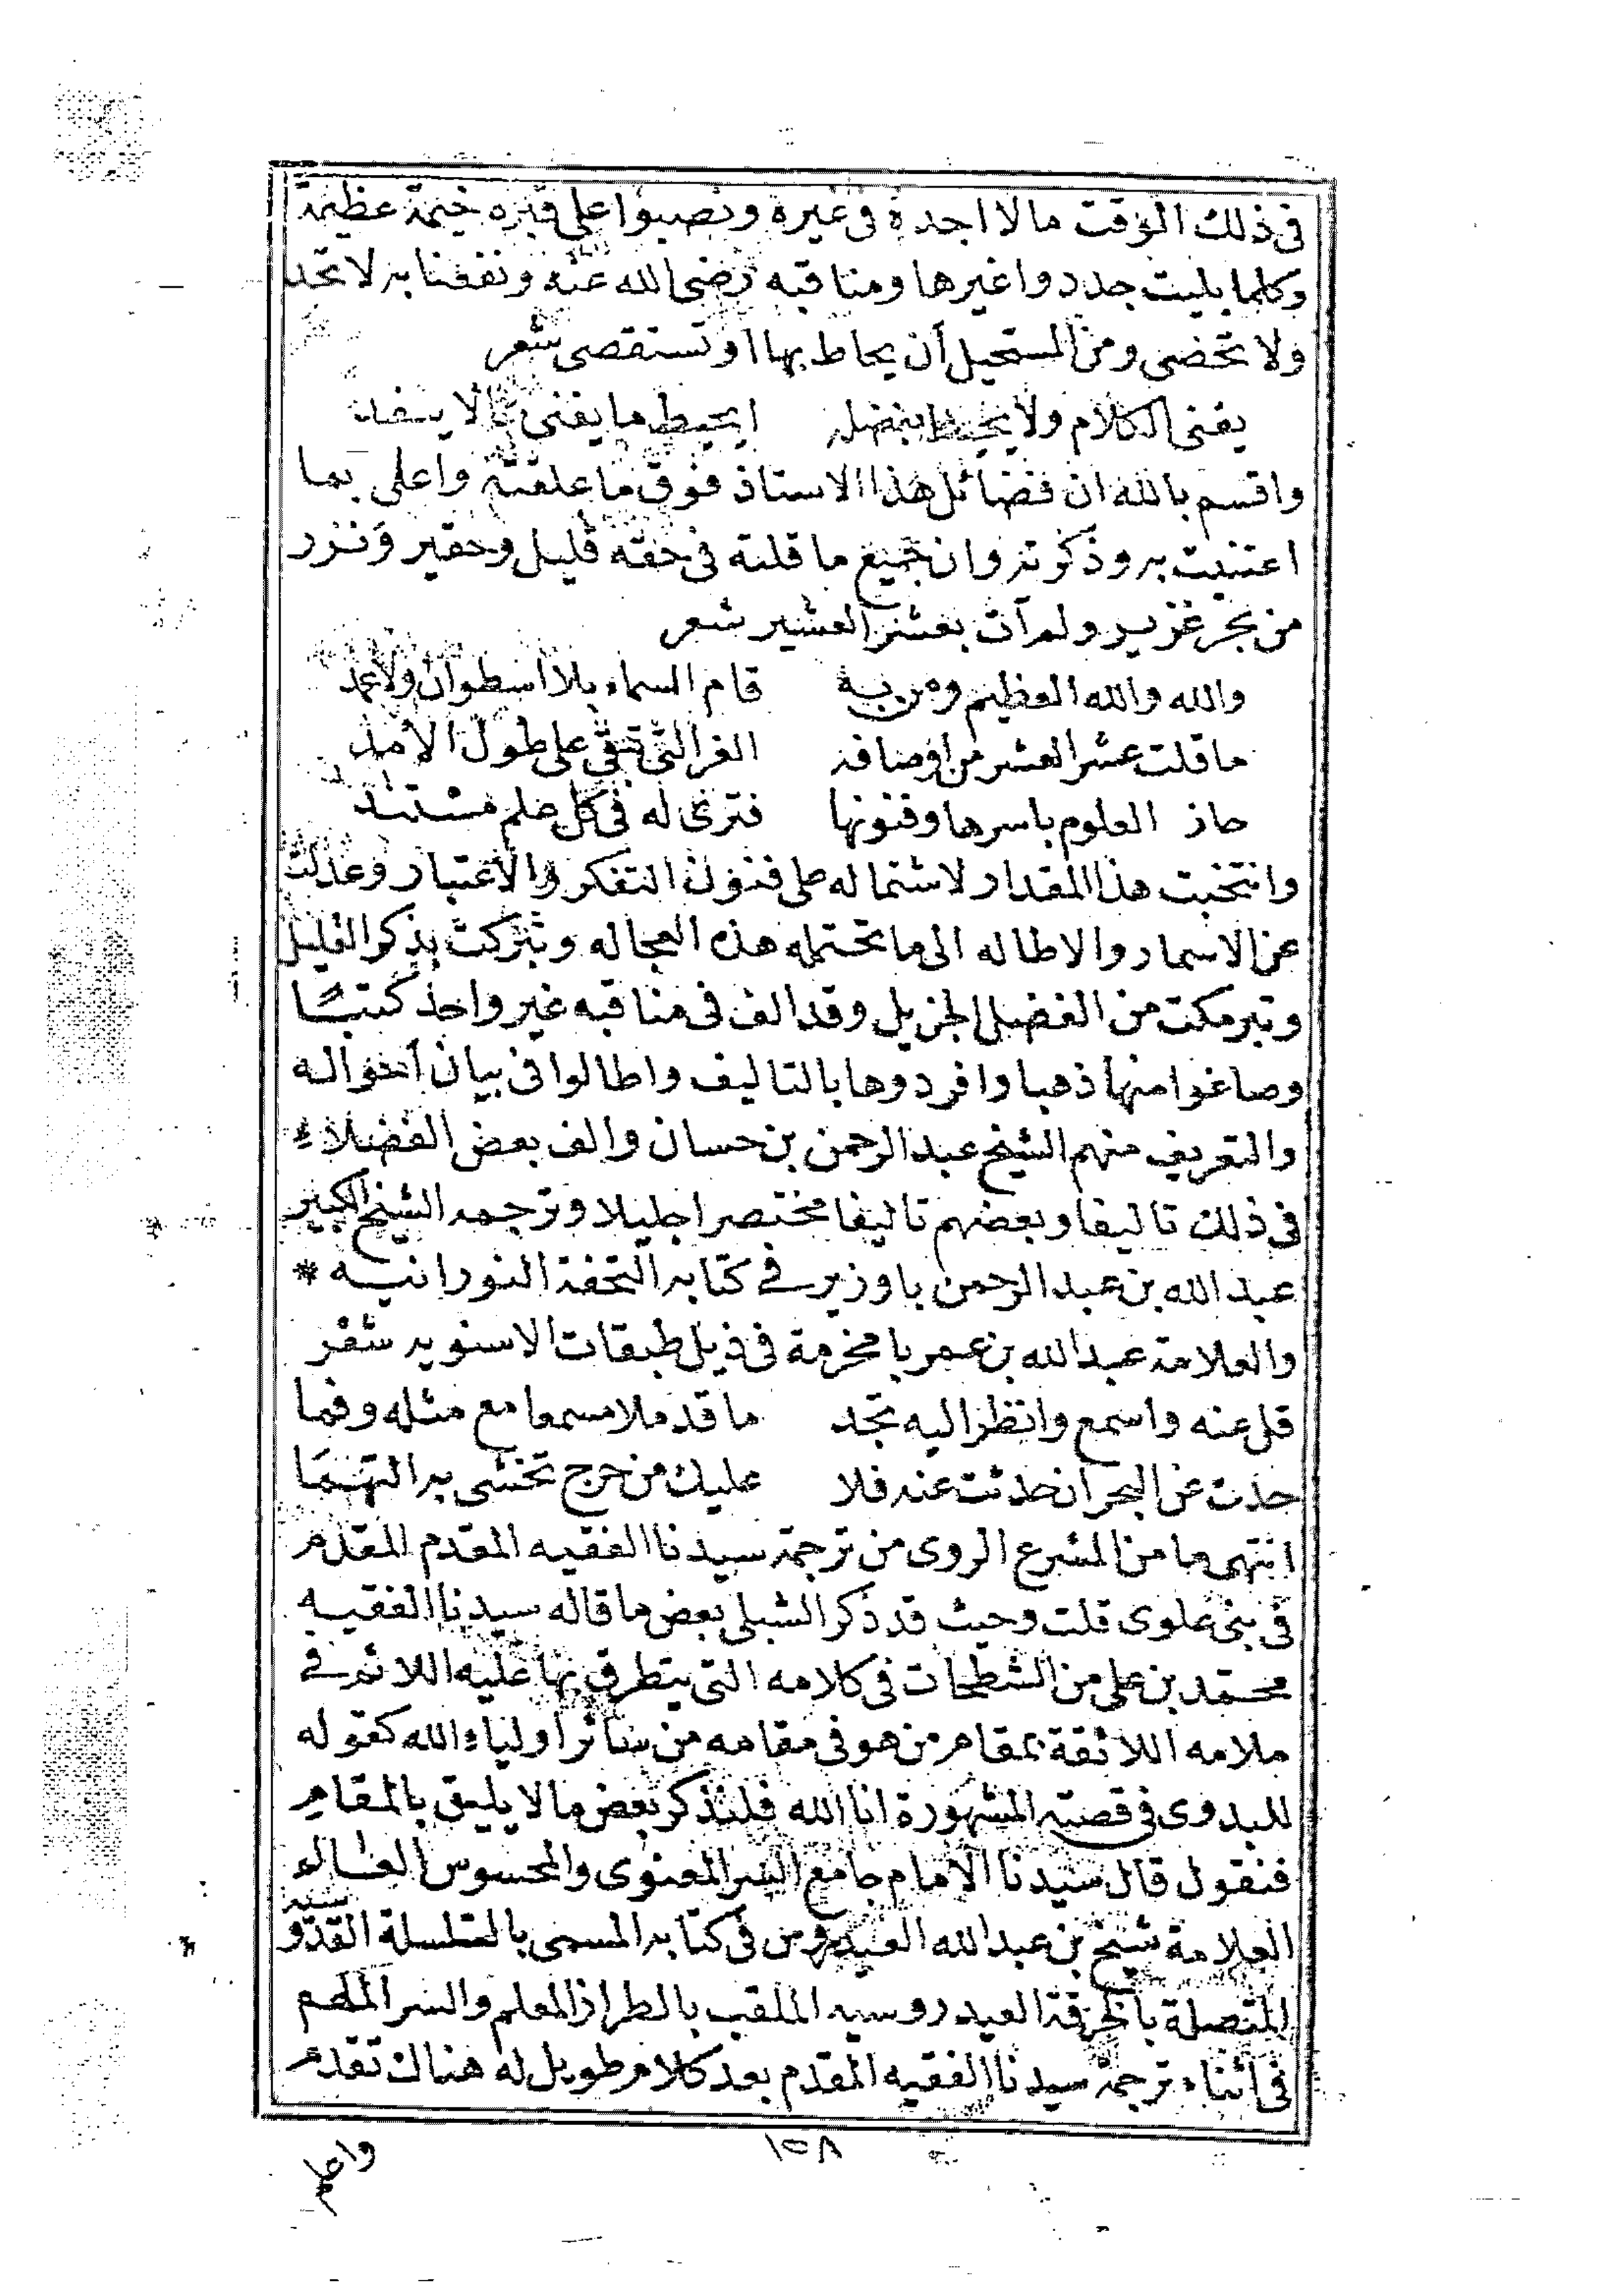 في ذلك الوقت مالا اجده في غيره ونصبوا على قبره خيمة عظيمة
وكلما بليت جددوا غيرها ومناقبه رضي الله عنه ونفعنا به لا تحد
ولا تحصى ومن المستحيل أن يحاط بها او تستقصى شعر
يفنى الكلام ولا يحيط بفضله ايحيط ما يفنى بما لا ينفد
واقسم بالله ان فضائل هذا الاستاذ فوق ما علقته واعلى بما
اعتنيت به وذكرته وان جميع ما قلته في حقه قليل وحقير ونزر
من بحر غزير ولم آت بعشر العشير شعر
والله والله العظيم ومن به قام السماء بلا اسطوان ولا عمد
ما قلت عشر العشر من اوصافه الغر التي تبقى على طول الامد
حاز العلوم باسرها وفنونها فترى له في كل علم مستند
وانتخبت هذا المقدار لاشتماله على فنون التفكر والاعتبار وعدلت
عن الاسمار والاطاله الى ما تحتمله هذه العجاله وتبركت بذكر القليل
وتبرمكت من الفضل الجزيل وقد الف في مناقبه غير واحد كتبًا
وصاغوا منها ذهبا وافردوها بالتاليف واطالوا في بيان أحواله
والتعريف منهم الشيخ عبد الرحمن بن حسان والف بعض الفضلاء
في ذلك تاليفا وبعضهم تاليفا مختصرا جليلا وترجمه الشيخ الكبير
عبد الله بن عبد الرحمن باوزير في كتابه التحفة النورانيه *
والعلامة عبد الله بن عمر با مخرمة في ذيل طبقات الاسنويه شعر
قل عنه واسمع وانظر اليه تجد ما قد ملا مسمعا مع مثله وفما
حدث عن البحر ان حدثت عنه فلا عليك من حرج تخشى به التهمَا
انتهى ما من المشرع الروى من ترجمة سيدنا الفقيه المقدم المقدم
في بني علوى قلت وحيث قد ذكر الشبلى بعض ما قاله سيدنا الفقيه
محمد بن على من الشطحات في كلامه التى يتطرق بها عليه اللائم في
ملامه اللائقة بمقام من هو في مقامه من سائر اولياء الله كقوله
للبدوى في قصته المشهورة انا الله فلنذكر بعض ما لا يليق بالمقام
فنقول قال سيدنا الامام جامع السر المعنوى والمحسوس العالم
العلامة شيخ بن عبد الله العيدروس في كتابه المسمى بالسلسلة القدوسيه
المتصلة بالخرقة العيدروسيه الملقب بالطراز المعلم والسر الملهم
في اثناء ترجمة سيدنا الفقيه المقدم بعد كلام طويل له هناك تقدم
١٥٨
واعلم